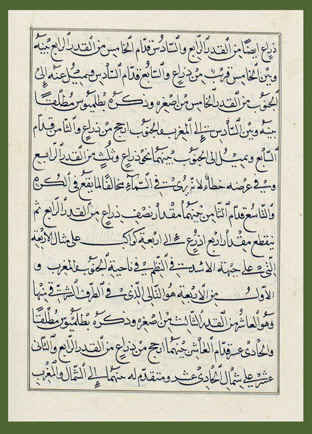 ذراع ايضا من القدر الرابع والسادس قدام الخامس من القدر الرابع بينه
وبين الخامس قريب من ذراع والسابع قدام السادس ويميل عنه الى
الجنوب من القدر الخامس من صغره وذكره بطلميوس مطلقا
بينه وبين السادس الى المغرب والجنوب ارجح من ذراع والثامن قدام
السابع ويميل الى الجنوب بينهما نحو ذراع وثلث من القدر الرابع
وفي عرضه خطأ لانه يرى في السماء مخالفا لما يقع في الكره
والتاسع قدام الثامن بينهما مقدار نصف ذراع من القدر الرابع ثم
ينقطع مقدار اربع اذرع الى اربعة كواكب على مثال الاربعة
التي على جبهة الاسد في النظم في ناحية الجنوب والمغرب و
الاول من الاربعة هو التالي الذي في الطرف الشمالي منها
وهو العاشر من القدر الثالث من صغره وذكره بطلميوس مطلقا
والحادي عشر قدام العاشر بينهما ارجح من ذراع من القدر الرابع والثاني
عشر على شمال الحادي عشر ومتقدم له بينهما الى الشمال والمغرب